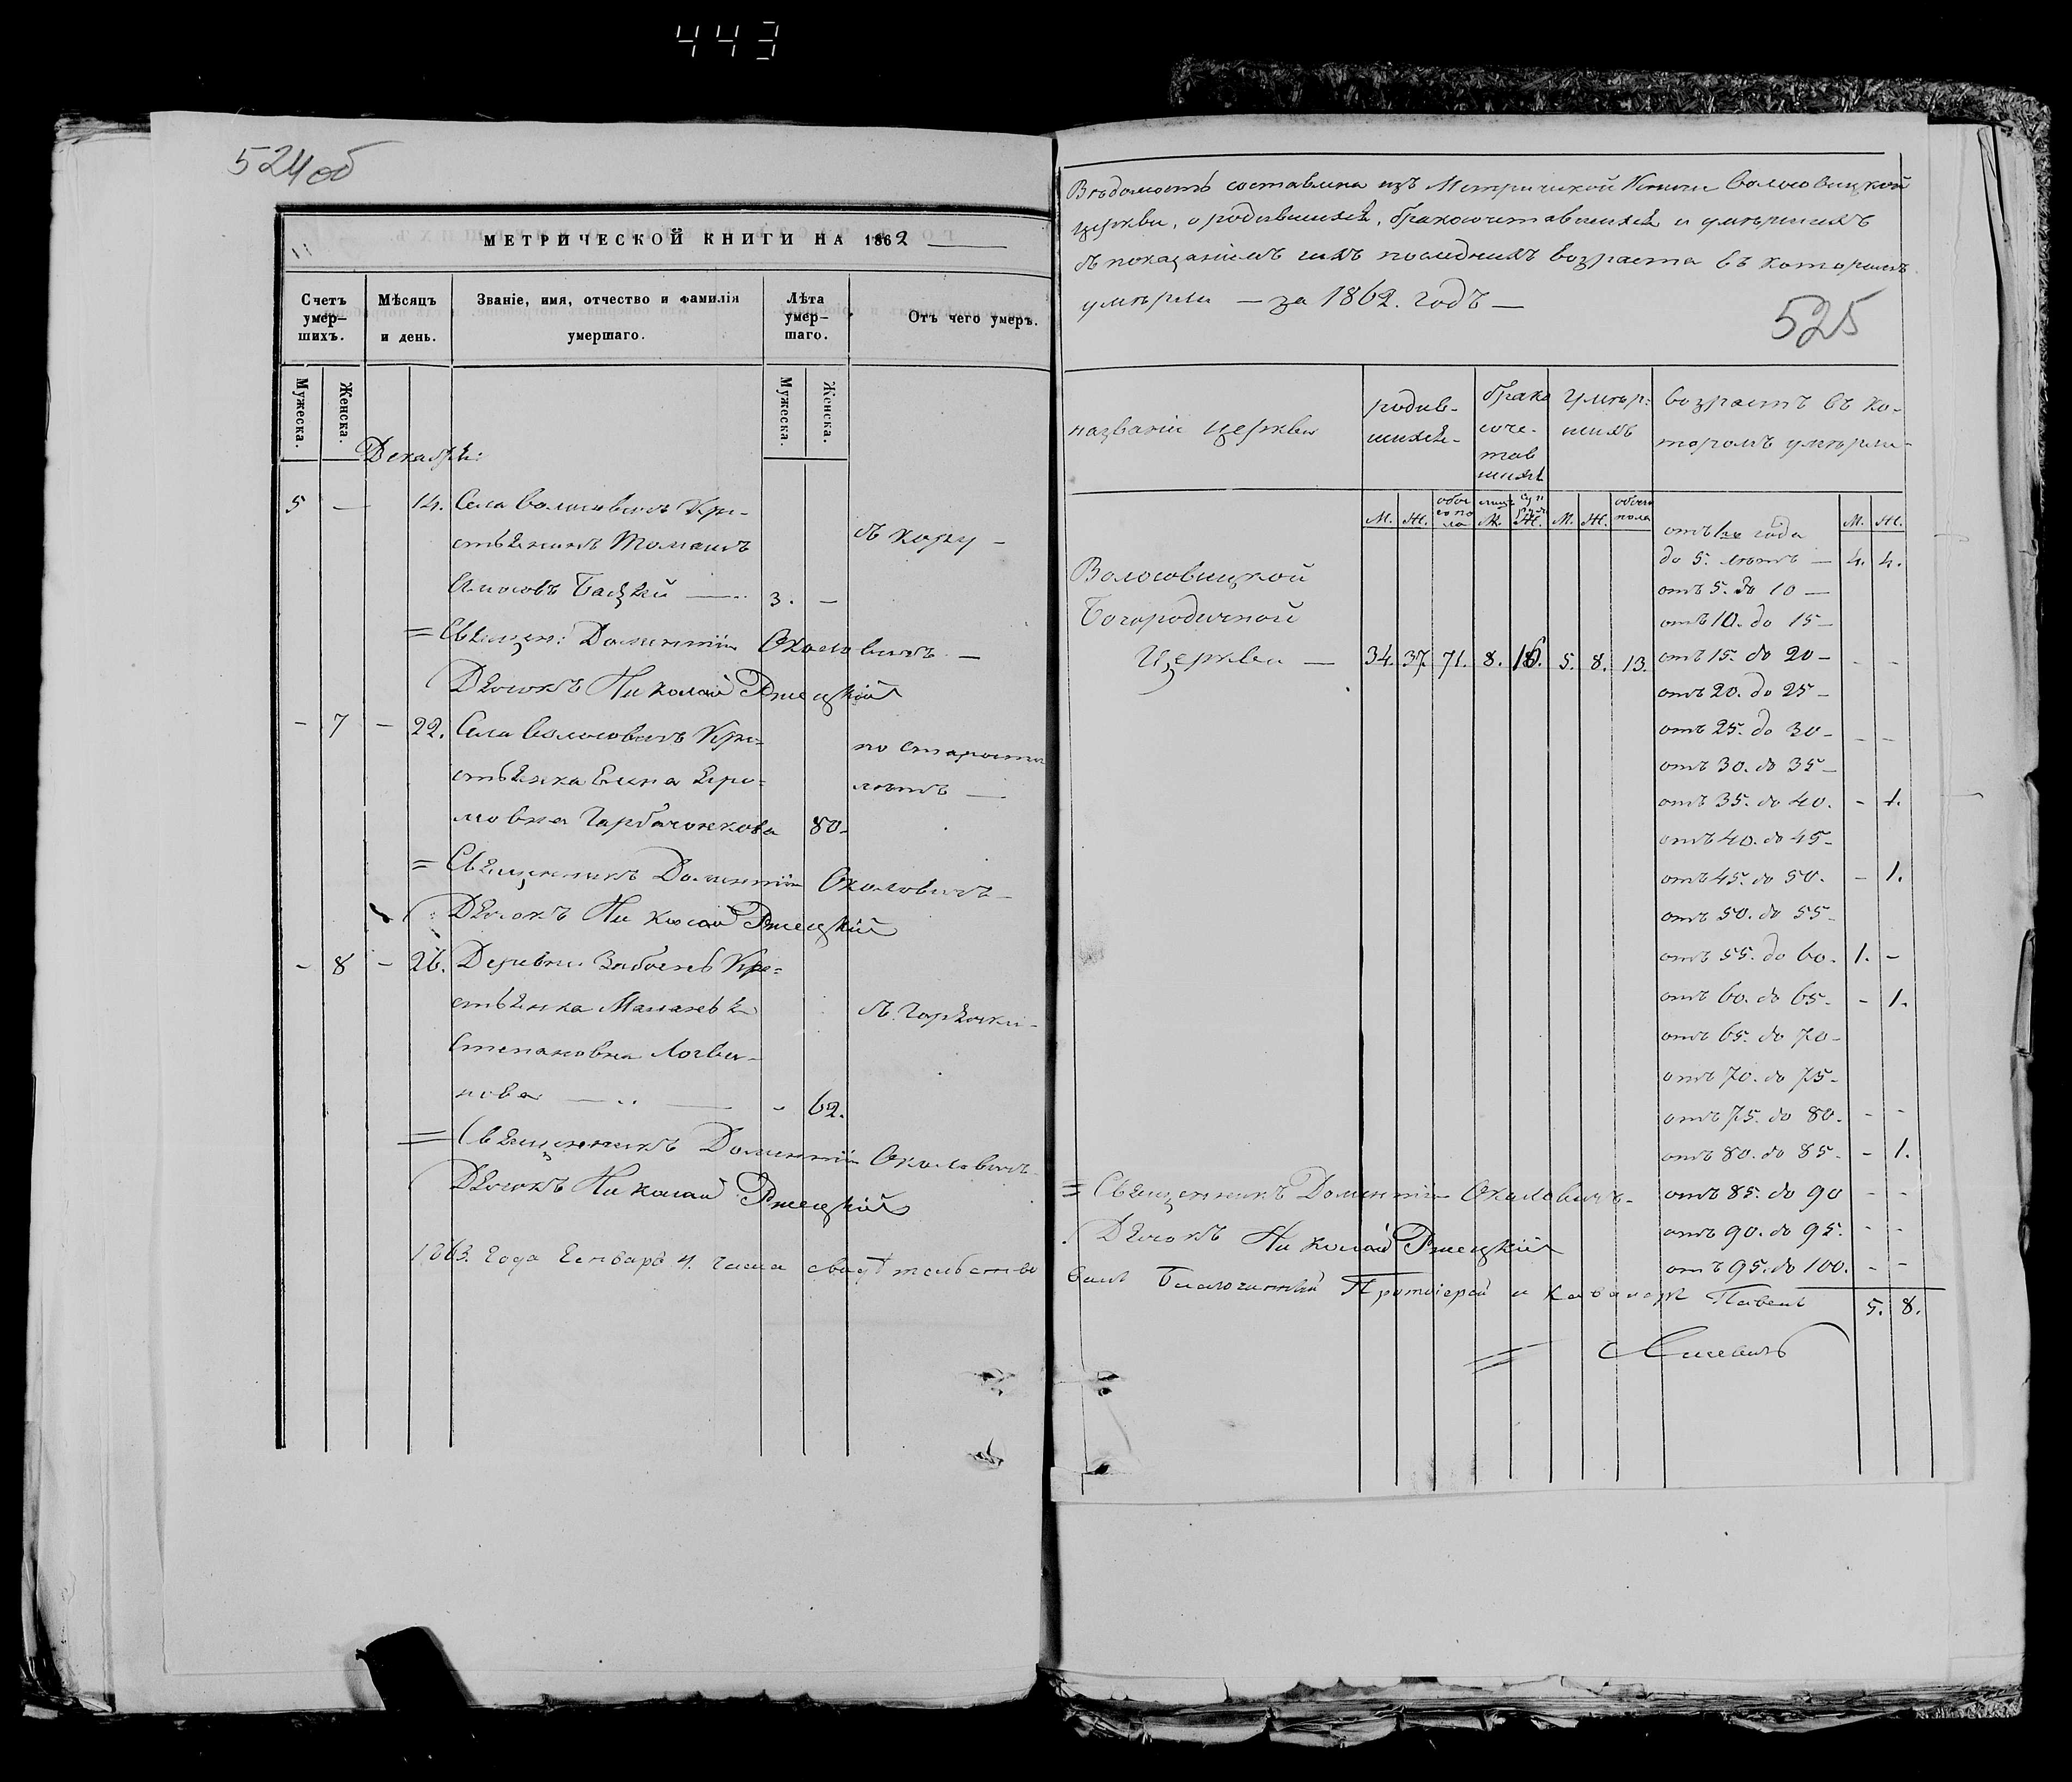 443
524об
МЕТРИЧЕСКОЙ КНИГИ НА 1862
Счетъ умер-шихъ.
Мѣсяцъ и день.
Званіе, имя, отчество и фамилія умершаго.
Лѣта умер-шаго.
Отъ чего умеръ.
Мужеска.
Женска.
Мужеска.
Женска.
Декабрь:
5 — 14. Села Волосовичъ Кре-
стьянинъ Томашъ
съ кору —
3. —
= Священ: Доментій Околовичъ —
Дьячокъ Николай Ржецкій
- 7 - 22. Села Волосовичъ Кре=
по старости
стьянка Елена
лѣтъ —
Гарбачонкова 80-
= Священникъ Доментій Околовичъ —
Дьячокъ Николай Ржецкій
- 8 - 26. Деревни Кре=
стьянка
съ горячки -
Степановна Логви-
нова — .. — - 62.
= Священникъ Доментій Околовичъ
Дьячокъ Николай Ржецкій
1863. Года Генваря 4. числа свидѣтельство
Вѣдомость составлена изъ Метрической Книги Волосовицкой
церкви, о родившихся, бракосочетавшихся и умершихъ
съ показаніемъ сихъ послѣднихъ возраста въ которомъ
умерли — за 1862. годъ —
525
названіи церкви
родив-
шихся-
брако
соче-
тав
шихся
умер:
шихъ
возрастъ въ ко-
торомъ умерли-
М. Ж. обое
го по
ла
М. Ж.
М. Ж. обоего
пола
М. Ж.
отъ 1го года
до 5. лѣтъ — 4. 4.
Волосовицкой
отъ 5. до 10 —
Богородичной
отъ 10. до 15 —
Церкви — 34. 37. 71. 8. 16. 5. 8. 13.
отъ 15. до 20 - - -
отъ 20. до 25 -
отъ 25. до 30 - - -
отъ 30. до 35 -
отъ 35. до 40. - 1.
отъ 40. до 45 -
отъ 45. до 50. - 1.
отъ 50. до 55 -
отъ 55. до 60. 1. -
отъ 60. до 65 - - 1.
отъ 65. до 70 -
отъ 70. до 75 -
отъ 75. до 80. - -
отъ 80. до 85. - 1.
отъ 85. до 90 - -
отъ 90. до 95. - -
отъ 95. до 100. - -
5. 8.
= Священникъ Доментій Околовичъ -
Дьячокъ Николай Ржецкій
валъ Благочинный Протоіерей и Кавалеръ Павелъ